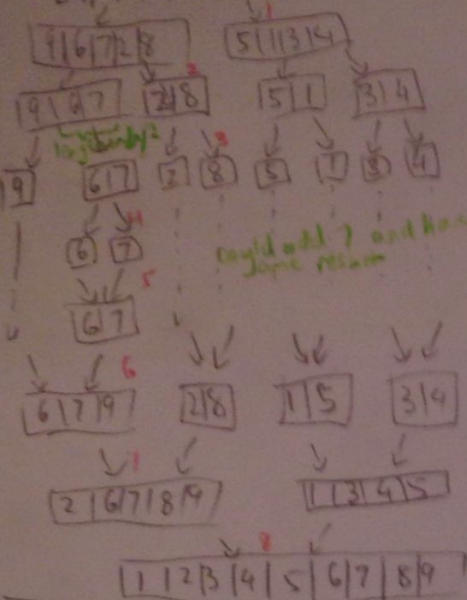 1
9|6|7|2|8 5|1|3|4
2
9|6|7 2|8 5|1 3|4
3
9 6|7 2 8 5 1 3 4
4
6 7
could add 7 and
5
6|7
6
6|7|9 2|8 1|5 3|4
7
2|6|7|8|9 1|3|4|5
8
1|2|3|4|5|6|7|8|9